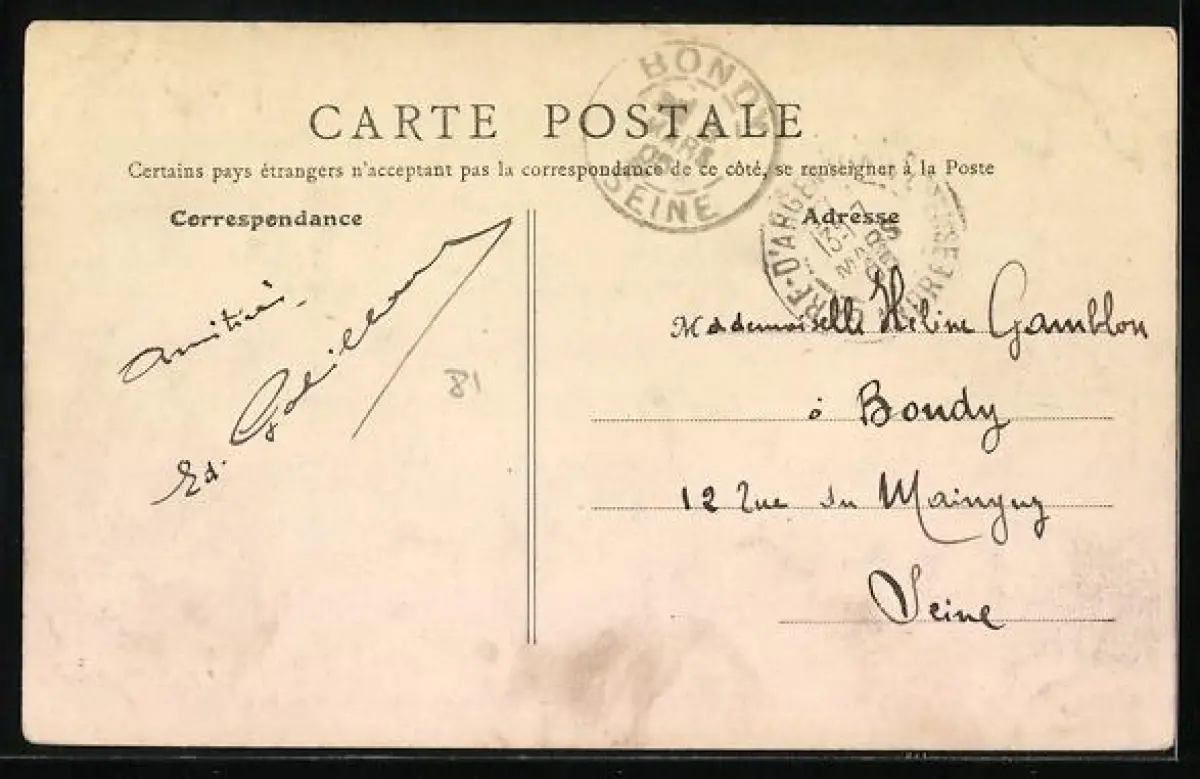 CARTE POSTALE
Certains pays étrangers n'acceptant pas la correspondance de ce côté, se renseigner à la Poste
Correspondance
Adresse
BONDY
MARS
SEINE
D'ARGEN
amitiés
Ed.
81
Mademoiselle Hélène Gamblon
à Bondy
12 Rue du Mainguy
Seine